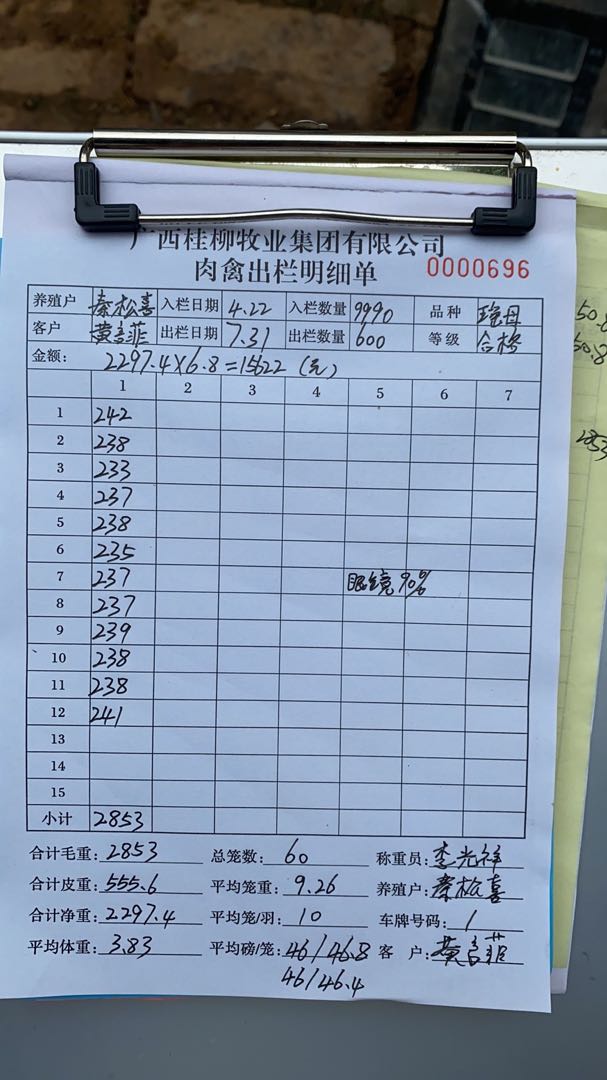 广西桂柳牧业集团有限公司
肉禽出栏明细单 0000696
养殖户 秦松喜 入栏日期 4.22 入栏数量 9990 品种 瑶母
客户 黄言菲 出栏日期 7.31 出栏数量 600 等级 合格
金额: 2297.4×6.8=15622 (元)
1 2 3 4 5 6 7
1 242
2 238
3 233
4 237
5 238
6 235
7 237 眼镜90%
8 237
9 239
10 238
11 238
12 241
13
14
15
小计 2853
合计毛重: 2853 总笼数: 60 称重员: 李光祥
合计皮重: 555.6 平均笼重: 9.26 养殖户: 秦松喜
合计净重: 2297.4 平均笼/羽: 10 车牌号码: 1
平均体重: 3.83 平均磅/笼: 46/46.8 客 户: 黄言菲
46/46.4
50.8
2853